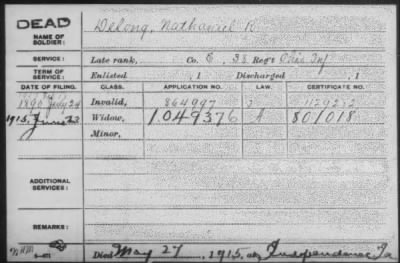 DEAD
NAME OF SOLDIER: Delong, Nathaniel R
SERVICE: Late rank, Co. E, 38 Reg't Ohio Inf
TERM OF SERVICE: Enlisted , 1 Discharged , 1
DATE OF FILING. CLASS. APPLICATION NO. LAW. CERTIFICATE NO.
1890 July 24 Invalid, 864997 1129252
1915, June 23 Widow, 1.049376 A 801018
Minor,
ADDITIONAL SERVICES:
REMARKS:
Died May 27, 1915, at Independence Ia